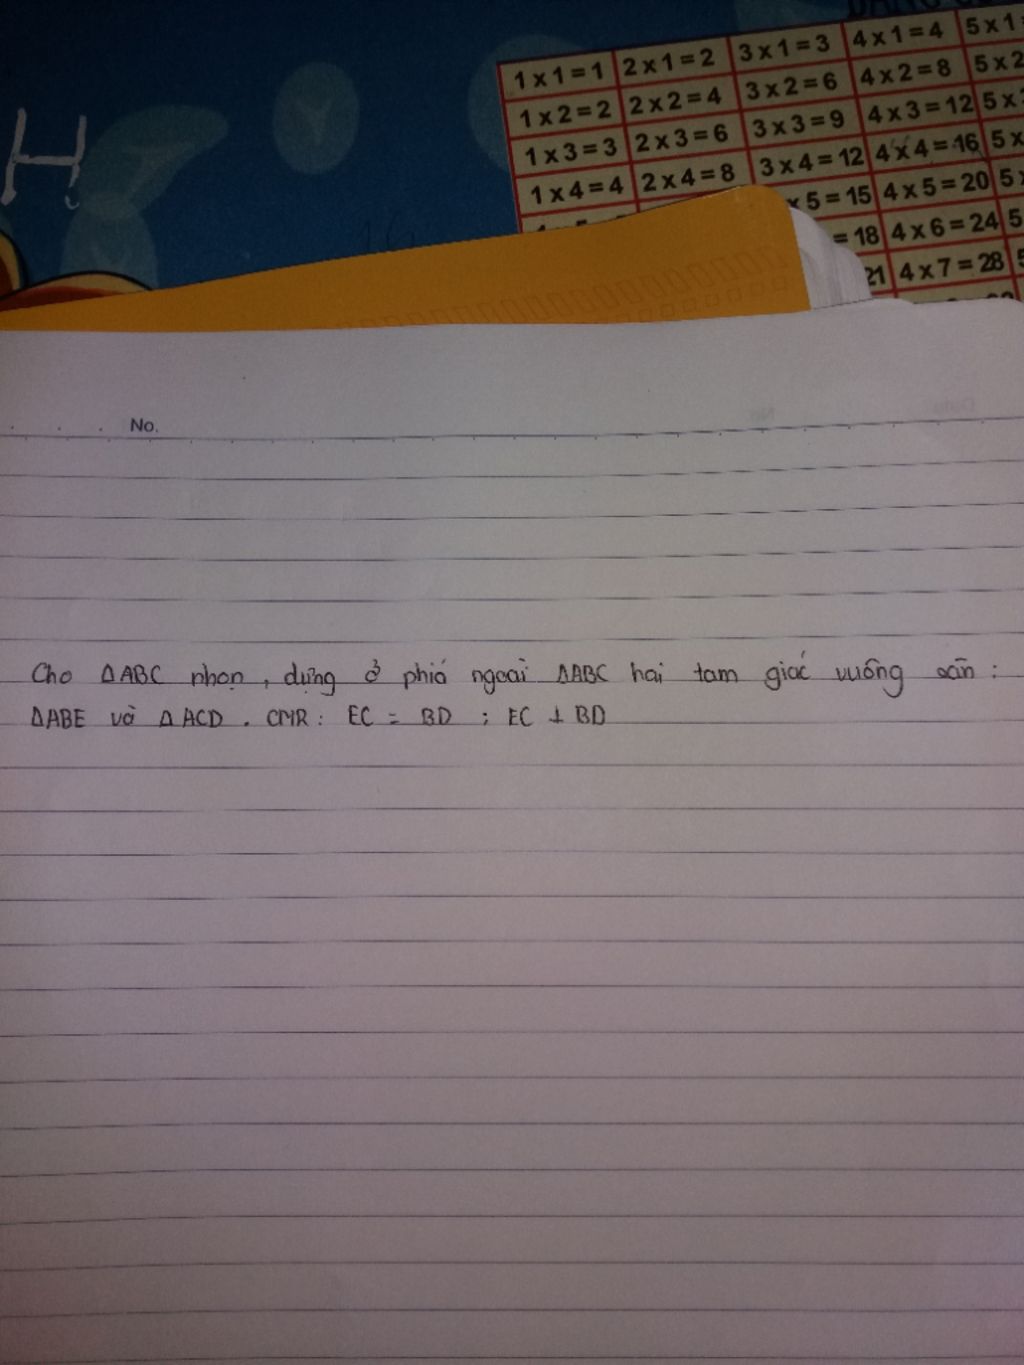 H
1 x 1 = 1 2 x 1 = 2 3 x 1 = 3 4 x 1 = 4 5 x 1
1 x 2 = 2 2 x 2 = 4 3 x 2 = 6 4 x 2 = 8 5 x 2
1 x 3 = 3 2 x 3 = 6 3 x 3 = 9 4 x 3 = 12 5 x
1 x 4 = 4 2 x 4 = 8 3 x 4 = 12 4 x 4 = 16 5 x
x 5 = 15 4 x 5 = 20 5
= 18 4 x 6 = 24 5
21 4 x 7 = 28 5
No.
Cho ΔABC nhọn, dựng ở phiá ngoài ΔABC hai tam giác vuông cân :
ΔABE và ΔACD . CMR : EC = BD ; EC ⊥ BD